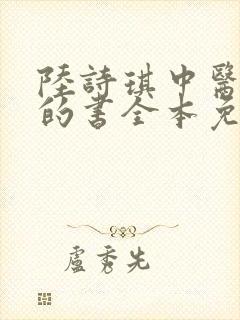 陸詩琪中醫
的書全本免
盧秀先